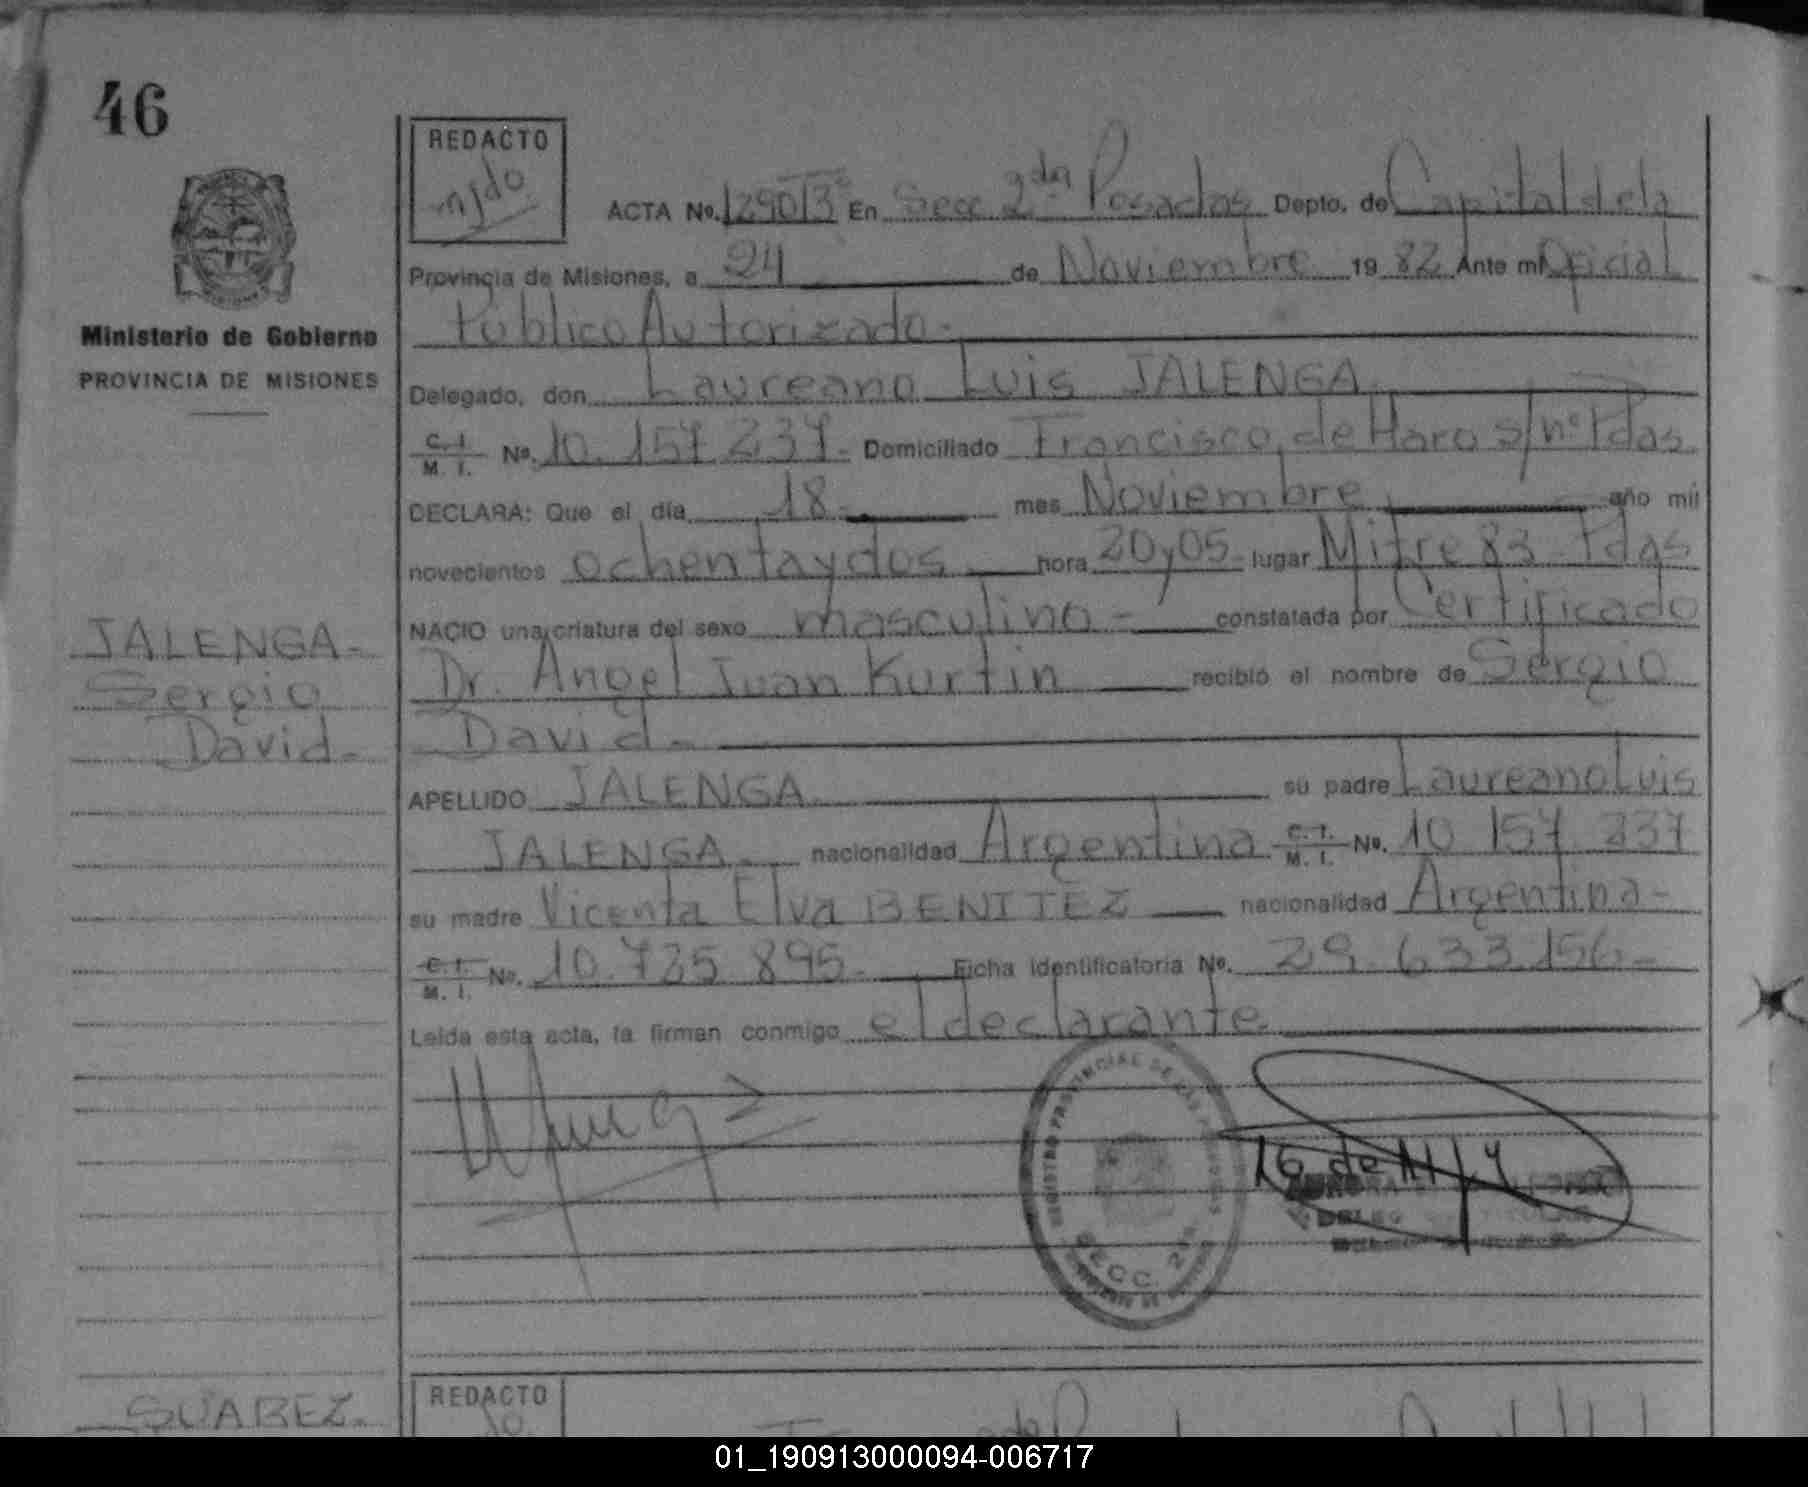 46
REDACTO
ACTA No. 1290/3º En Secc 2da Posadas Depto. de Capital de la
Provincia de Misiones, a 24 de Noviembre 1982 Ante mí Oficial
Público Autorizado.
Ministerio de Gobierno
PROVINCIA DE MISIONES
Delegado, don Laureano Luis JALENGA
C. I.
M. I. No. 10.157.237.- Domiciliado Francisco de Haro s/nº Pdas.
DECLARA: Que el día 18.- mes Noviembre año mil
novecientos ochenta y dos hora 20 y 05 lugar Mitre 83 Pdas
NACIO una criatura del sexo masculino - constatada por Certificado
JALENGA-
Sergio
David-
Dr. Angel Juan Kurtin recibió el nombre de Sergio
David-
APELLIDO JALENGA su padre Laureano Luis
JALENGA- nacionalidad Argentina C. I.
M. I. No. 10 157 237
su madre Vicenta Elva BENITEZ nacionalidad Argentina-
C. I.
M. I. No. 10.725.895- Ficha Identificatoria No. 29.633.156-
Leída esta acta, la firman conmigo el declarante
REGISTRO PROVINCIAL DE LAS PERSONAS
SECC. 2da
SUAREZ-
REDACTO
01_190913000094-006717